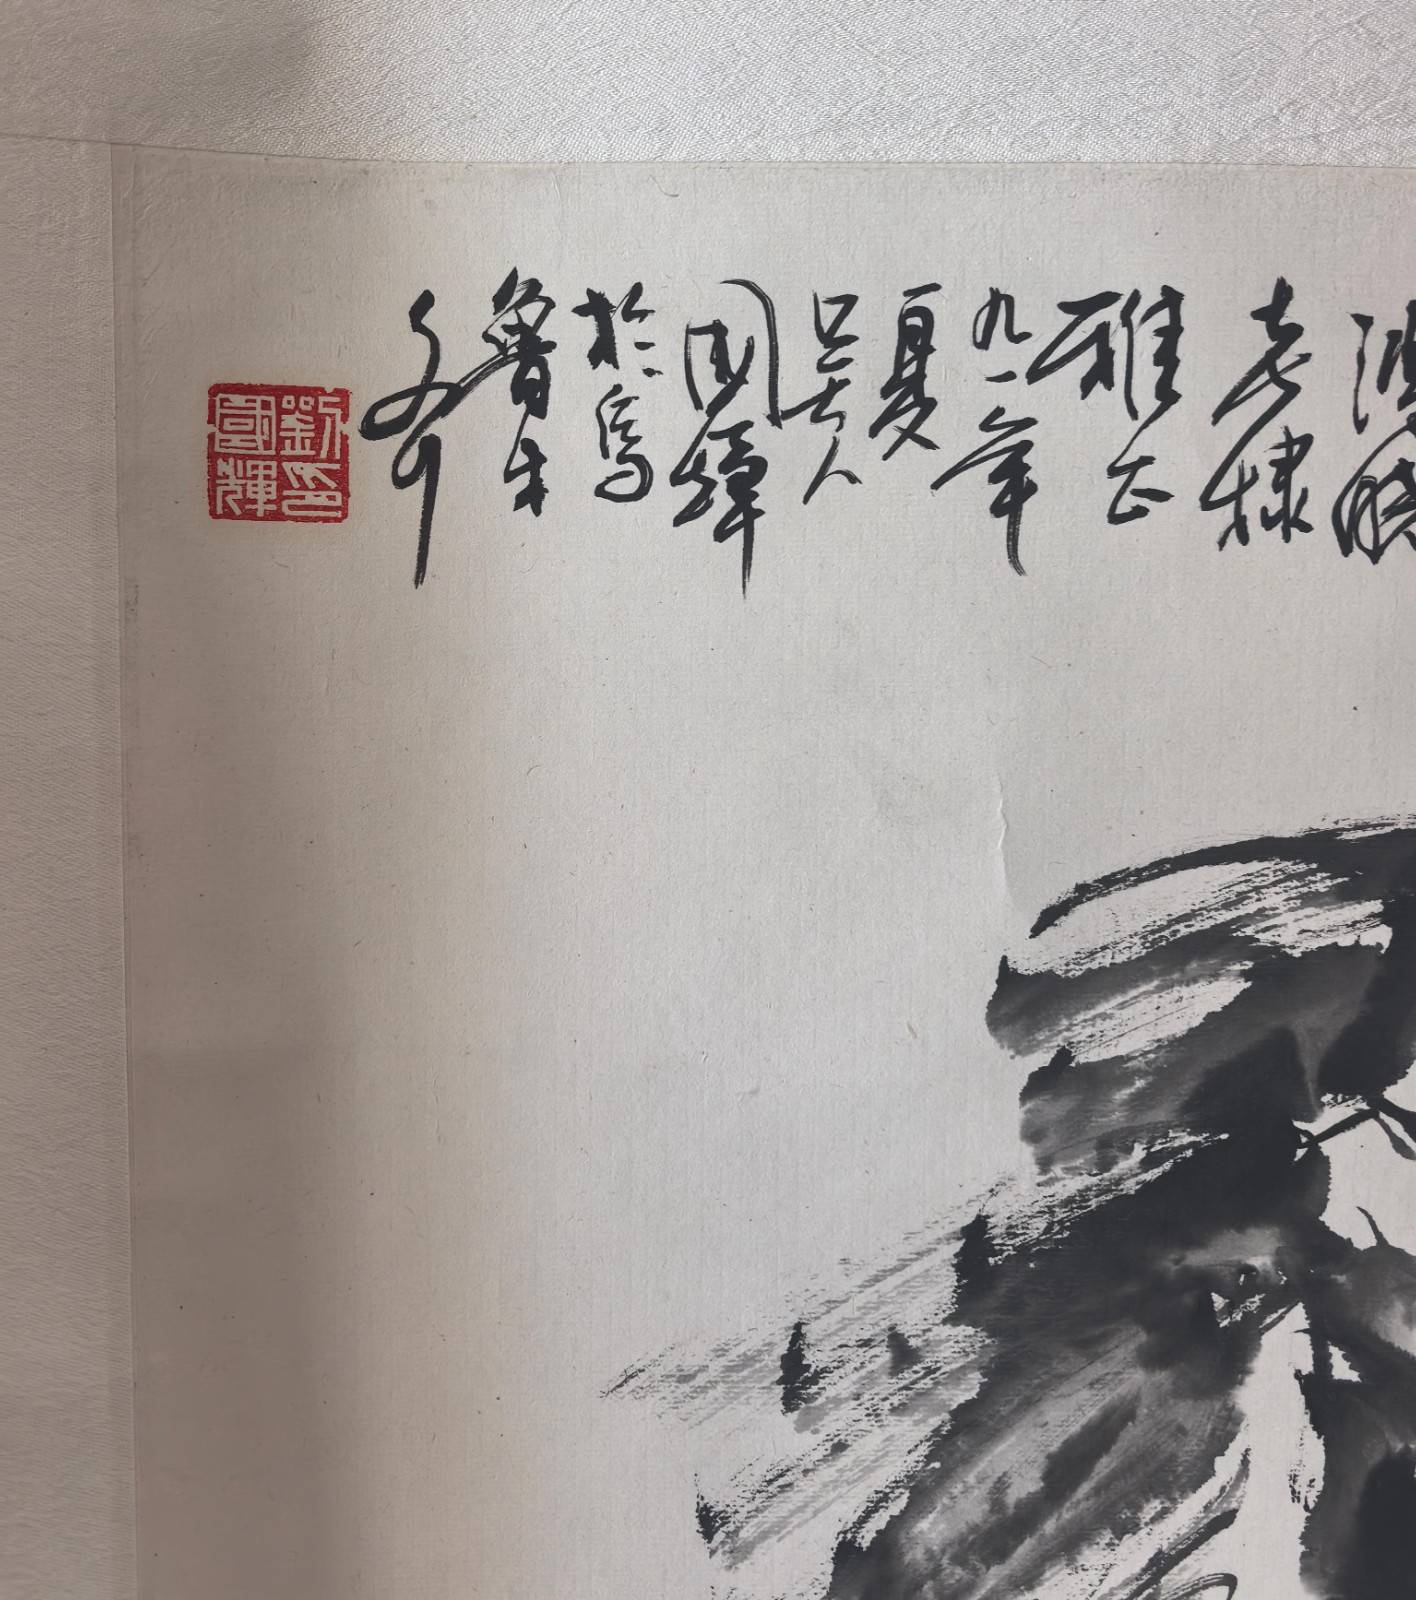 老棣
雅正
九一年
夏
吴人
國輝
於
魯
劉印
國輝